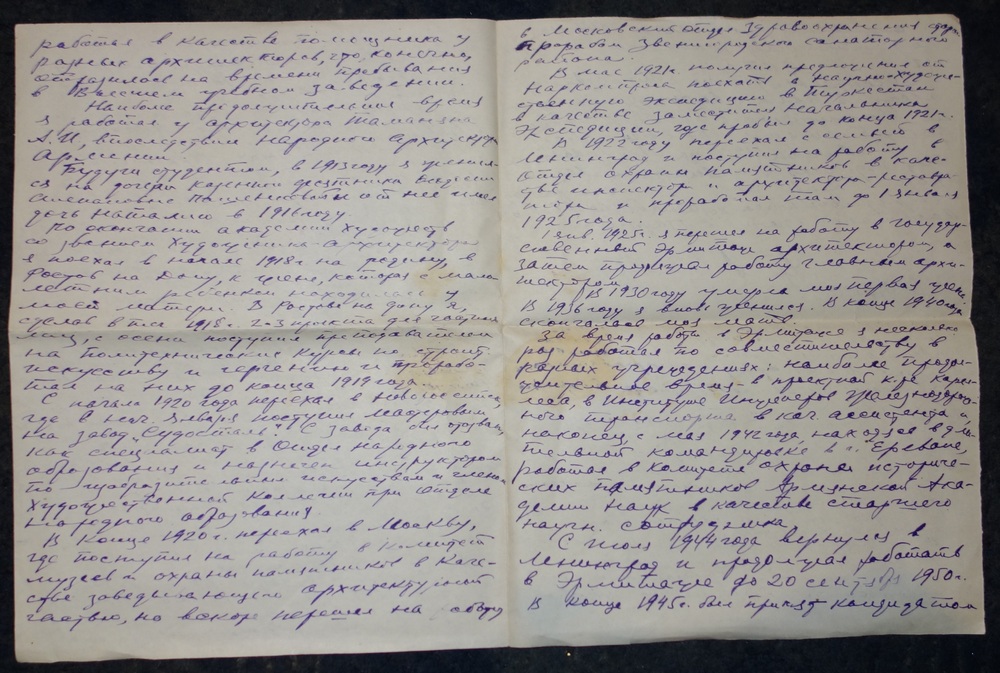 работая в качестве помощника у
разных архитекторов, что, конечно,
отразилось на времени пребывания
в Высшем учебном заведении.
Наиболее продолжительное время
я работал у архитектора Таманяна
А.И, впоследствии Народного Архитектора
Армении.
Будучи студентом, в 1913 году я женился
ся на дочери
и от нее имел
дочь Наталию в 1916 году.
По окончании академии Художеств
со званием Художника-архитектора
я поехал в начале 1918 г на родину, в
Ростов на Дону, к жене, которая с мало-
летним ребенком находилась у
моей матери. В Ростове на Дону я,
сделав в 1918 г. 2-3 проекта для частных
лиц, с осени поступил преподавателем
на политехнические курсы по строит.
искусству и черчению и прорабо-
тал на них до конца 1919 года.
С начала 1920 года переехал в
где в нач. января поступил
на завод "Судосталь". С завода был отозван,
как специалист в Отдел народного
образования и назначен инструктором
по изобразительным искусствам и членом
Художественной Коллегии при Отделе
Народного образования.
В Конце 1920 г. переехал в Москву,
где поступил на работу в Комитет
музеев и охраны памятников в Каче-
стве заведывающего архитектурной
частью, но вскоре перешел на
в Московский Отдел Здравоохранения
прорабом Звенигородского санаторного
района.
В мае 1921 г. получил предложение от
Наркомпроса поехать в научно-художе-
ственную экспедицию в Туркестан
в качестве заместителя начальника
Экспедиции, где пробыл до конца 1921 г.
В 1922 году переехал с семьею в
Ленинград и поступил на работу в
Отдел охраны памятников в каче-
стве инспектора и архитектора-реставра-
тора и проработал там до 1 января
1925 года.
1 янв. 1925 г. я перешел на работу в государ-
ственный Эрмитаж архитектором, а
затем продолжал работу главным архи-
тектором.
В 1930 году умерла моя первая жена.
В 1936 году я вновь женился. В конце 1940 года
скончалась моя мать.
За время работы в Эрмитаже я несколько
раз работал по совместительству в
разных учреждениях: наиболее продол-
жительное время - в проектной к-ре
в Институте Инженеров Железнодорож-
ного транспорта в кач ассистента и,
наконец, с мая 1942 года, находясь в дли-
тельной командировке в г. Ереване,
работал в Комитете охраны историче-
ских памятников Армянской Ака-
демии наук в качестве старшего
научн. сотрудника.
С июля 1944 года вернулся в
Ленинград и продолжал работать
в Эрмитаже до 20 сентября 1950 г.
В конце 1945 г. был принят кандидатом